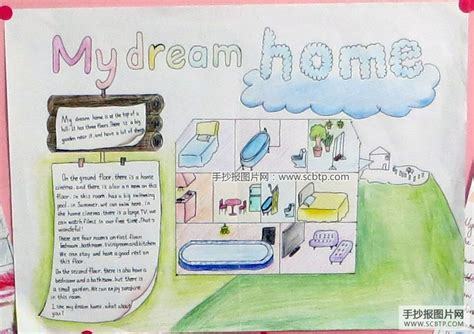 My dream home
My dream home is at the top of a
hill. It has three floors. There is a big
garden near it, and have a lot of
On the ground floor, there is a home
cinema, and there is also an a room on this
floor, in this room has a big swimming
pool, in Summer, we can swim here, in
the home cinema, there is a large TV, we
can watch films in our free time. That's
wonderful!
There are four rooms on first floor,
bedroom, bathroom, livingroom and kitchen
We can stay and have a good rest on
this floor.
On the second floor, there is also have a
bedroom and a bathroom, but there is
a small garden. We can enjoy sunshine
in this room.
I love my dream home, what about
you?
手抄报图片网：www.scbtp.com
手抄报图片网
WWW.SCBTP.COM